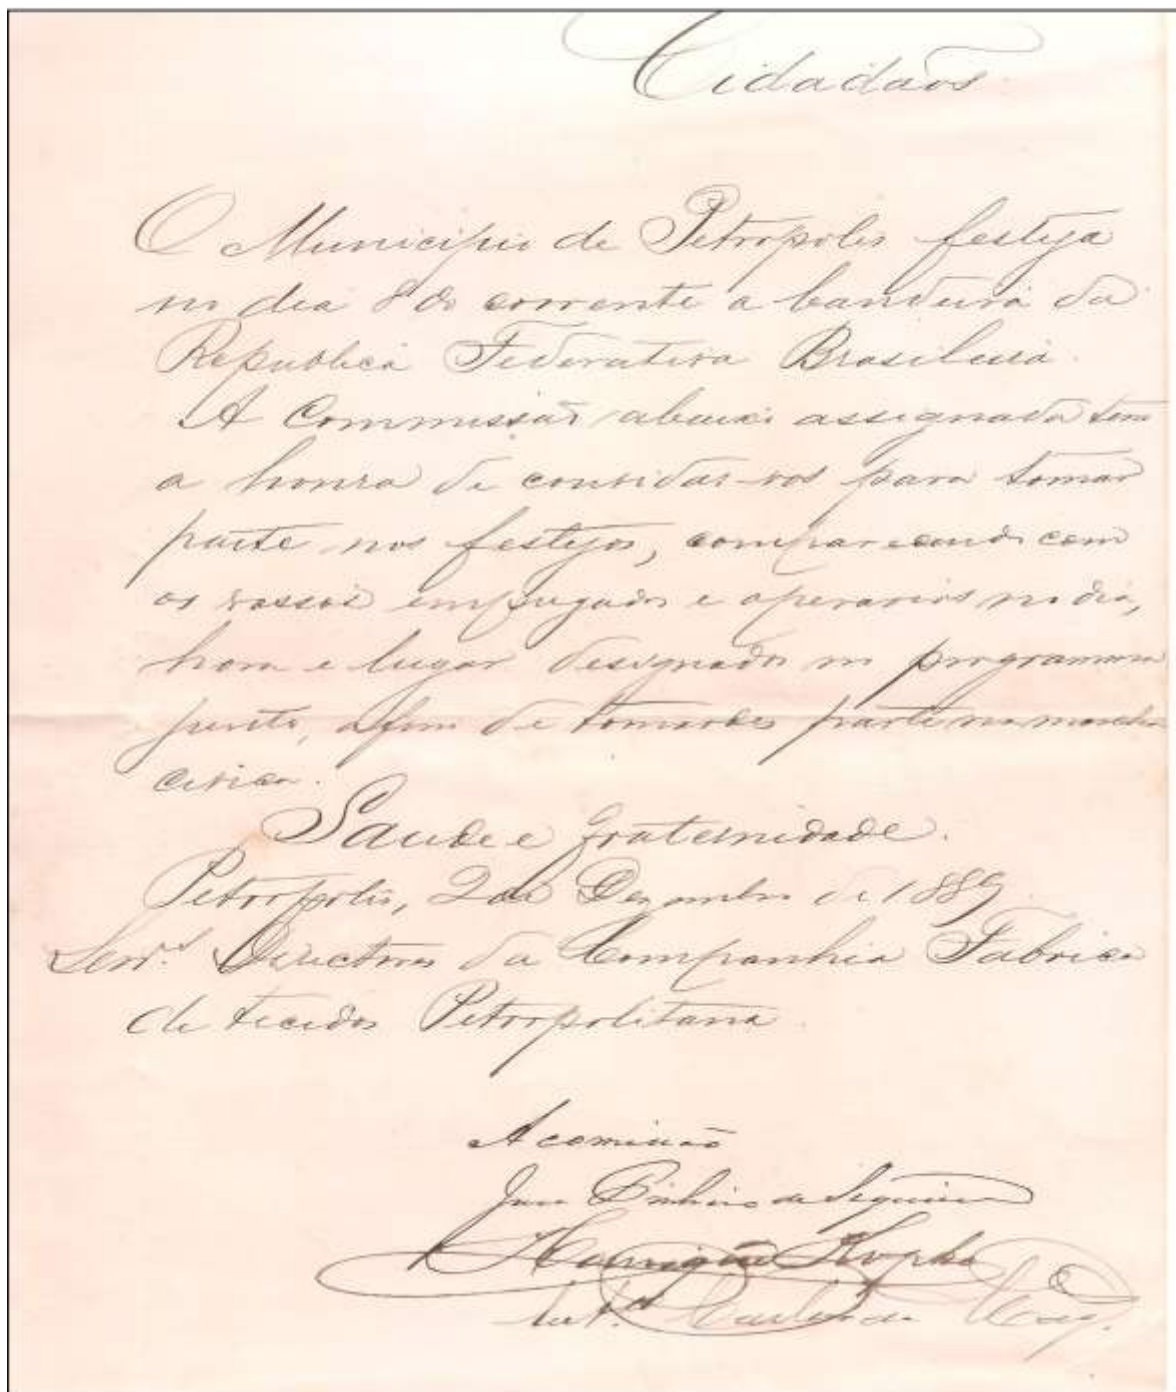 Cidadãos
O Municipio de Petropolis festeja
no dia 8 do corrente a bandeira da
Republica Federativa Brasileira.
A Commissão abaixo assignada tem
a honra de convidar-vos para tomar
parte nos festejos, comparecendo com
os vossos empregados e operarios no dia,
hora e lugar designados no programma
junto, afim de tomardes parte na marcha
civica.
Saude e fraternidade.
Petropolis, 2 de Dezembro de 1889
Directores da Companhia Fabrica
de tecidos Petropolitana.
A comissão
Pinheiro de Siqueira
Henrique Kopke